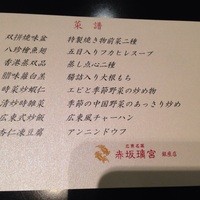 菜譜
双拼焼味盆 特製焼き物前菜二種
八珍燴魚翅 五目入りフカヒレスープ
香港蒸双品 蒸し点心二種
腊味蘿白糕 腸詰入り大根もち
時菜炒蝦仁 エビと季節野菜の炒め物
清炒時離菜 季節の中国野菜のあっさり炒め
広東式炒飯 広東風チャーハン
杏仁凍豆腐 アンニンドウフ
広東名菜
赤坂璃宮 銀座店